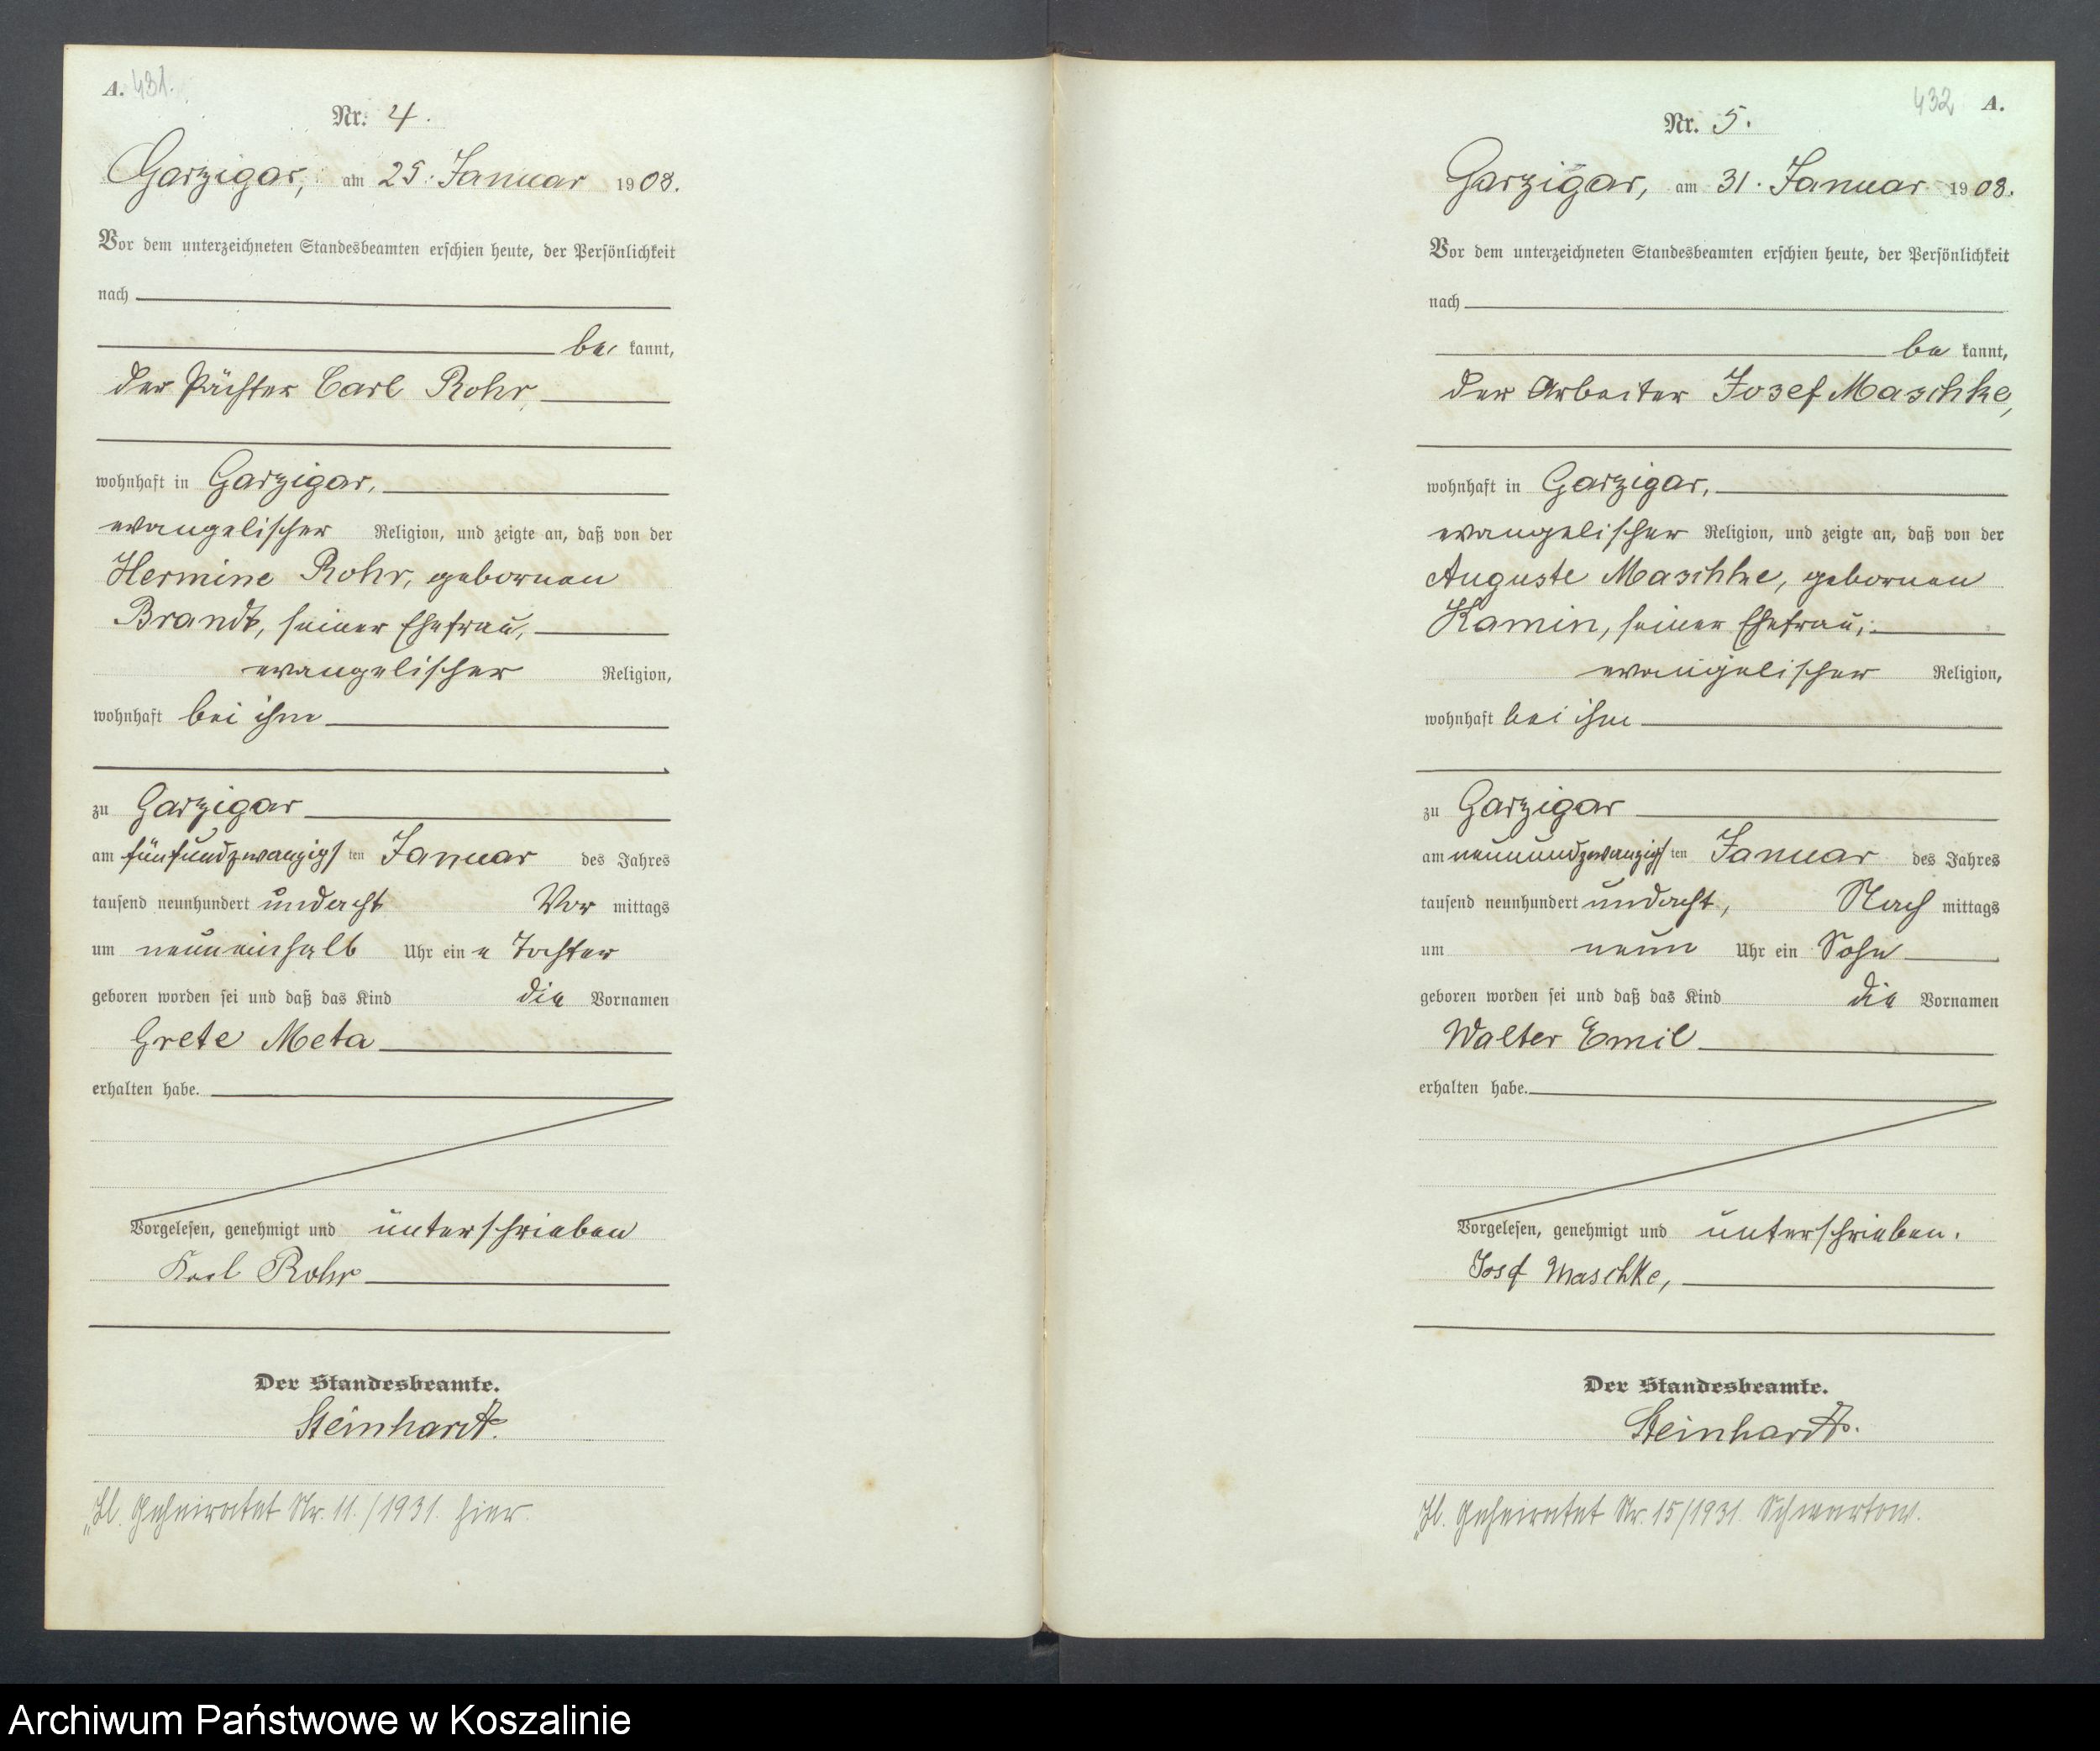 A. 431.
Nr. 4.
Garzigar, am 25. Januar 1908.
Vor dem unterzeichneten Standesbeamten erschien heute, der Persönlichkeit
nach
be kannt,
der Pächter Carl Rohr
wohnhaft in Garzigar,
evangelischer Religion, und zeigte an, daß von der
Hermine Rohr, gebornen
Brandt, seiner Ehefrau,
evangelischer Religion,
wohnhaft bei ihm
zu Garzigar
am fünfundzwanzigsten Januar des Jahres
tausend neunhundert und acht Vor mittags
um neuneinhalb Uhr ein e Tochter
geboren worden sei und daß das Kind die Vornamen
Grete Meta
erhalten habe.
Vorgelesen, genehmigt und unterschrieben
Karl Rohr
Der Standesbeamte.
Steinhardt.
Geheiratet Nr. 11./1931. hier.
432 A.
Nr. 5.
Garzigar, am 31. Januar 1908.
Vor dem unterzeichneten Standesbeamten erschien heute, der Persönlichkeit
nach
be kannt,
der Arbeiter Josef Maschke,
wohnhaft in Garzigar,
evangelischer Religion, und zeigte an, daß von der
Auguste Maschke, gebornen
Kamin, seiner Ehefrau,
evangelischer Religion,
wohnhaft bei ihm
zu Garzigar
am neunundzwanzigsten Januar des Jahres
tausend neunhundert und acht, Nach mittags
um neun Uhr ein Sohn
geboren worden sei und daß das Kind die Vornamen
Walter Emil
erhalten habe.
Vorgelesen, genehmigt und unterschrieben.
Josef Maschke,
Der Standesbeamte.
Steinhardt.
Geheiratet Nr. 15/1931. Schwartow.
Archiwum Państwowe w Koszalinie